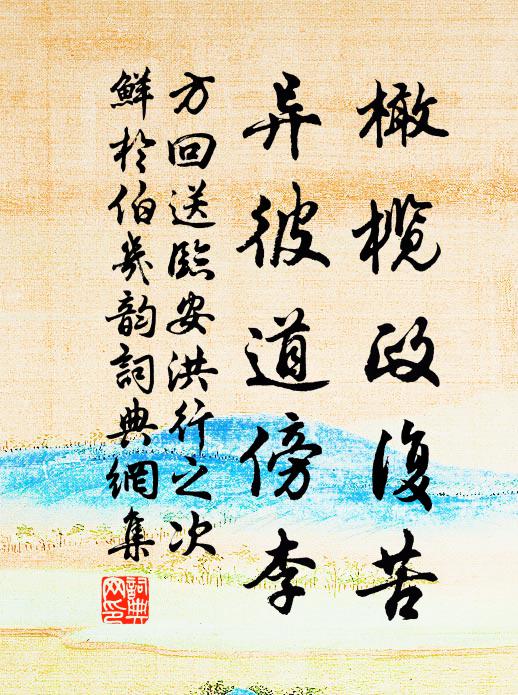 橄榄政復苦
异彼道傍李
方回送臨安洪行之次
鮮於伯幾韵詞典網集